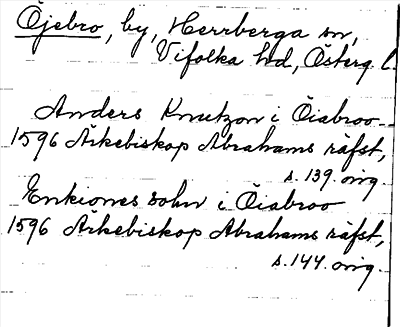 Öjebro, by, Herrberga sn,
Vifolka hd, Österg. l.
Anders Knutzon i Öiabroo
1596 Ärkebiskop Abrahams räfst,
s. 139. orig.
Enkiones sohn i Öiabroo
1596 Ärkebiskop Abrahams räfst,
s. 144. orig.